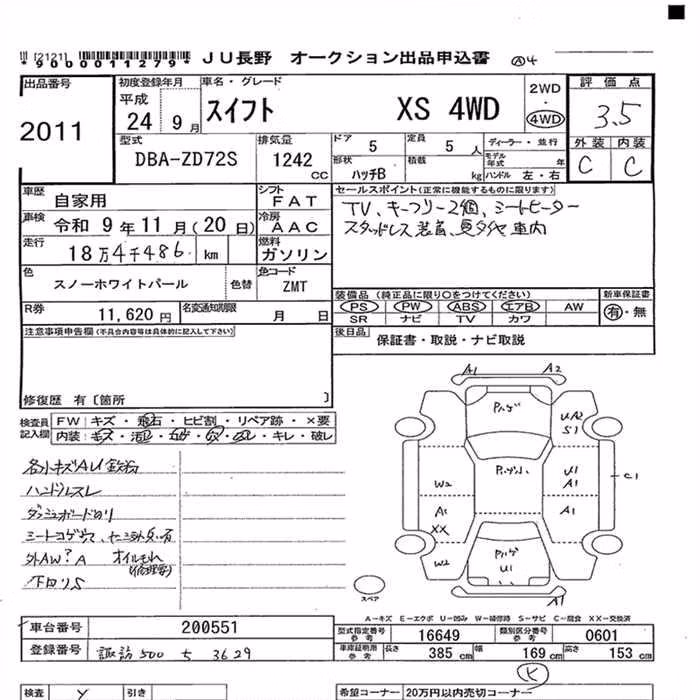 [2121]
*9000011279* JU長野 オークション出品申込書 Ⓐ4
出品番号 2011
初度登録年月 平成 24 9月
車名・グレード スイフト XS 4WD
2WD ・ 4WD
評価点 3.5
外装 内装
C C
型式 DBA-ZD72S
排気量 1242 CC
ドア 5 定員 5人
形状 ハッチB 積載 kg
ディーラー・並行
モデル年式 年
ハンドル 左・右
車歴 自家用
シフト FAT
車検 令和 9年 11月 (20日)
冷房 AAC
走行 18万4千486 km
燃料 ガソリン
色 スノーホワイトパール 色替
色コード ZMT
R券 11,620円
名変通知期限 月 日
セールスポイント(正常に機能するものに限ります)
TV、キーフリー2個、シートヒーター
スタッドレス装着、夏タイヤ車内
装備品(純正品に限り○をつけてください)
PS PW ABS エアB AW
SR ナビ TV カワ
新車保証書
有・無
後日品 保証書・取説・ナビ取説
注意事項申告欄(不具合内容等は具体的に記入して下さい)
修復歴 有〔箇所 〕
検査員記入欄
FW キズ・飛石・ヒビ割・リペア跡・×要
内装:キズ・汚レ・コゲ・穴・スレ・キレ・破レ
各小キズAU鉄粉
ハンドルスレ
ダッシュボード凹リ
外AW?A オイルモレ
(修理要)
下回りS
A1 A2
Pハゲ
UA2
S1
Pハゲ小
W2
U1
A1
C1
A1
XX
A1
W2
Pハゲ
U1
A1
スペア
A-キズ E-エクボ U-凹み W-補修跡 S-サビ C-腐食 XX-交換済
車台番号 200551
登録番号 諏訪 500 ち 3629
型式指定番号参考 16649 類別区分番号参考 0601
車庫証明用参考 長さ 385cm 幅 169cm 高さ 153cm
K
検査 Y 引き
希望コーナー 20万円以内売切コーナー